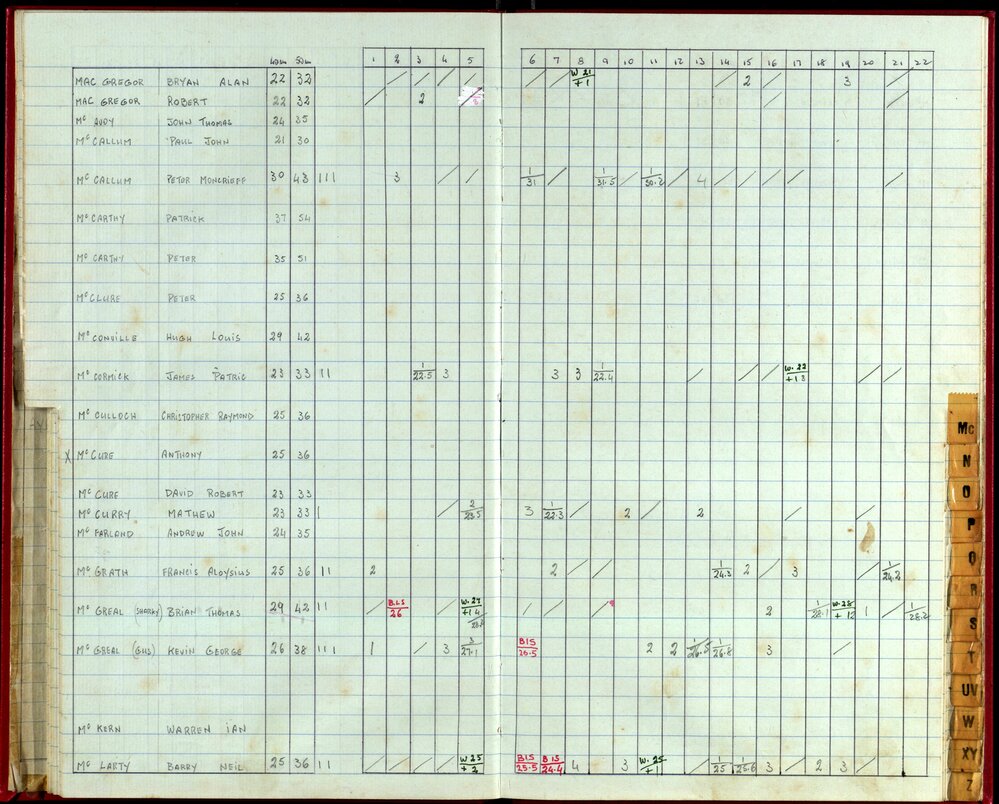 40m 50m 1 2 3 4 5 6 7 8 9 10 11 12 13 14 15 16 17 18 19 20 21 22
MAC GREGOR BRYAN ALAN 22 32 / / / / / / W 21 +1 / 2 / 3 /
MAC GREGOR ROBERT 22 32 / 2 / / /
Mc AUDY JOHN THOMAS 24 35
Mc CALLUM PAUL JOHN 21 30
Mc CALLUM PETER MONCRIEFF 30 43 III 3 / / 1/31 / 1/31.5 / 1/30.2 / 4 / / / / /
Mc CARTHY PATRICK 37 54
Mc CARTHY PETER 35 51
Mc CLURE PETER 25 36
Mc CONVILLE HUGH LOUIS 29 42
Mc CORMICK JAMES PATRIC 23 33 II 1/22.5 3 3 3 1/22.4 / / / W. 22 +1 3 / /
Mc CULLOCH CHRISTOPHER RAYMOND 25 36
X Mc CURE ANTHONY 25 36
Mc CURE DAVID ROBERT 23 33
Mc CURRY MATHEW 23 33 I / 2/23.5 3 1/22.3 / 2 / 2 / /
Mc FARLAND ANDREW JOHN 24 35
Mc GRATH FRANCIS ALOYSIUS 25 36 II 2 2 / / 1/24.3 2 / 3 / 1/24.2
Mc GREAL (SHARKY) BRIAN THOMAS 29 42 II / B.15 26 / W. 27 +1 4 / / / 2 1/28.1 W. 28 + 12 1 / 1/28.2
Mc GREAL (GUS) KEVIN GEORGE 26 38 III 1 / 3 3/27.1 B15 26.5 2 2 1/26.5 1/26.8 3 /
Mc KERN WARREN IAN
Mc LARTY BARRY NEIL 25 36 II / / / / W 25 + 2 B15 25.5 B 15 24.4 4 3 W. 25 +1 / 1/25 1/25.6 3 / 2 3 /
Mc
N
O
P
Q
R
S
T
UV
W
XY
Z